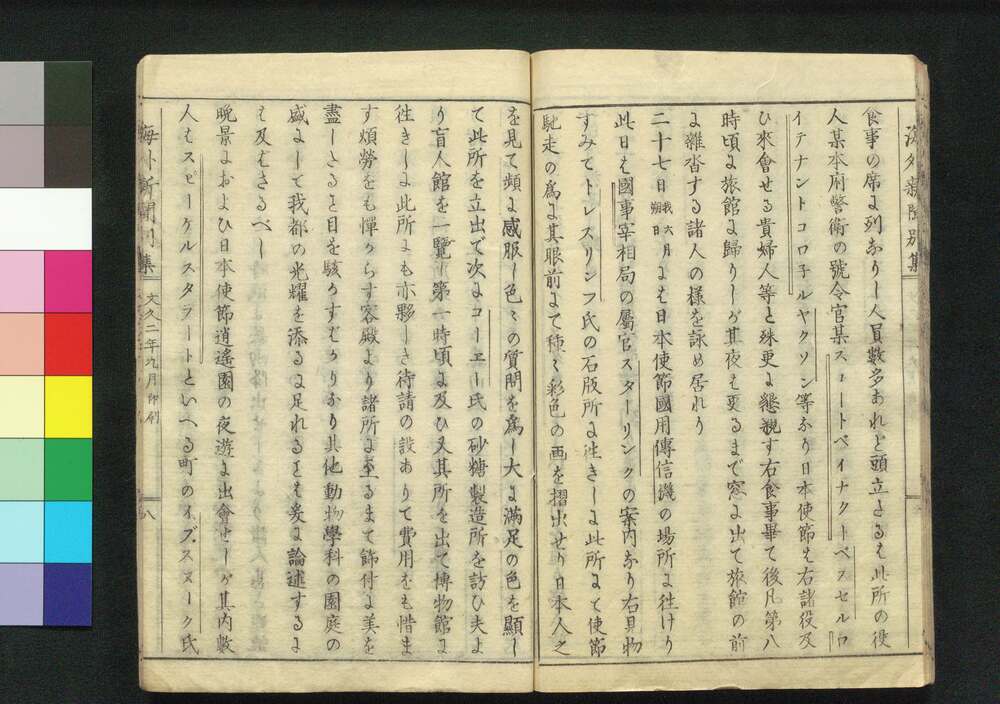 海外新聞別集
食事の席に列なりし人員數多あれど頭立たるは此所の役
人某本府警衛の號令官某ストートベイナクートベフセルロ
イテナントコロ子ルヤクソン等なり日本使節は右諸役及
ひ來會せる貴婦人等と殊更に懇親す右食事畢て後凡第八
時頃に旅館に歸りしが其夜は更るまで窓に出て旅館の前
に雜沓する諸人の様を詠め居れり
二十七日我六月朔日には日本使節國用傳信機の場所に徃けり
此日は國事宰相局の屬官スターリンクの案内なり右見物
すみてトレスリンフ氏の石版所に徃きしに此所にて使節
馳走の爲に其眼前にて種〻彩色の画を摺出せり日本人之
を見て頻に感服し色〻の質問を爲し大に滿足の色を顯し
て此所を立出で次にコーエー氏の砂糖製造所を訪ひ夫よ
り盲人館を一覽し第一時頃に及ひ又其所を出て博物館に
徃きしに此所にも亦夥しき待請の設ありて費用をも惜ま
す煩勞をも憚からす客殿より諸所に至るまて餝付に美を
盡したると目を駭かすばかりなり其他動物學科の園庭の
盛にして我都の光耀を添るに足れるとは爰に論述するに
は及はさるべし
晩景におよひ日本使節逍遙園の夜遊に出會せしが其内數
人はスピーケルスタラートといへる町のイブススーク氏
海外新聞別集
文久二年九月印刷
八